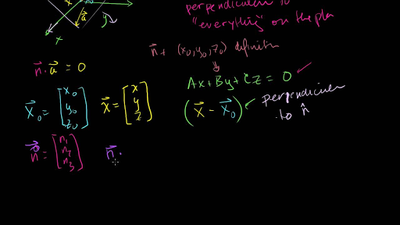 perpendicular to
"everything" on the pla
x
y
a
n · a = 0
n + (x₀, y₀, z₀) definition
Ax + By + Cz = 0 ✓
x₀ = [x₀ y₀ z₀]
x = [x y z]
(x - x₀) ✓ perpendicular
to n̂
n = [n₁ n₂ n₃]
n ·